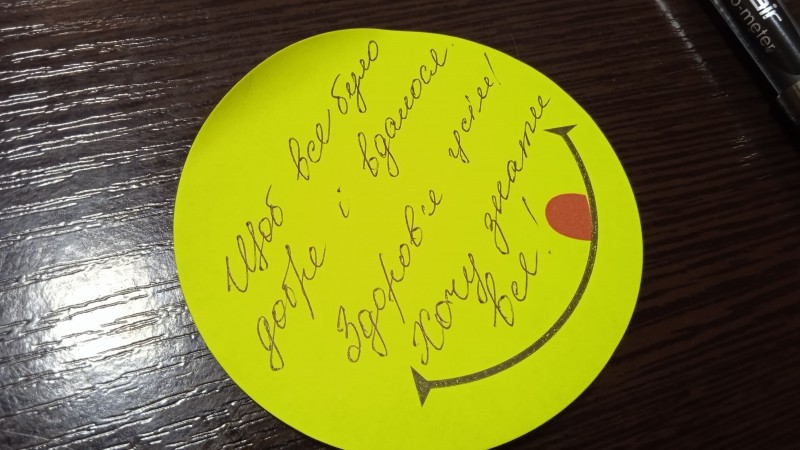 Щоб все було
добре і вдалося.
Здоров'я усім!
Хочу знати
все!
air
o-meter